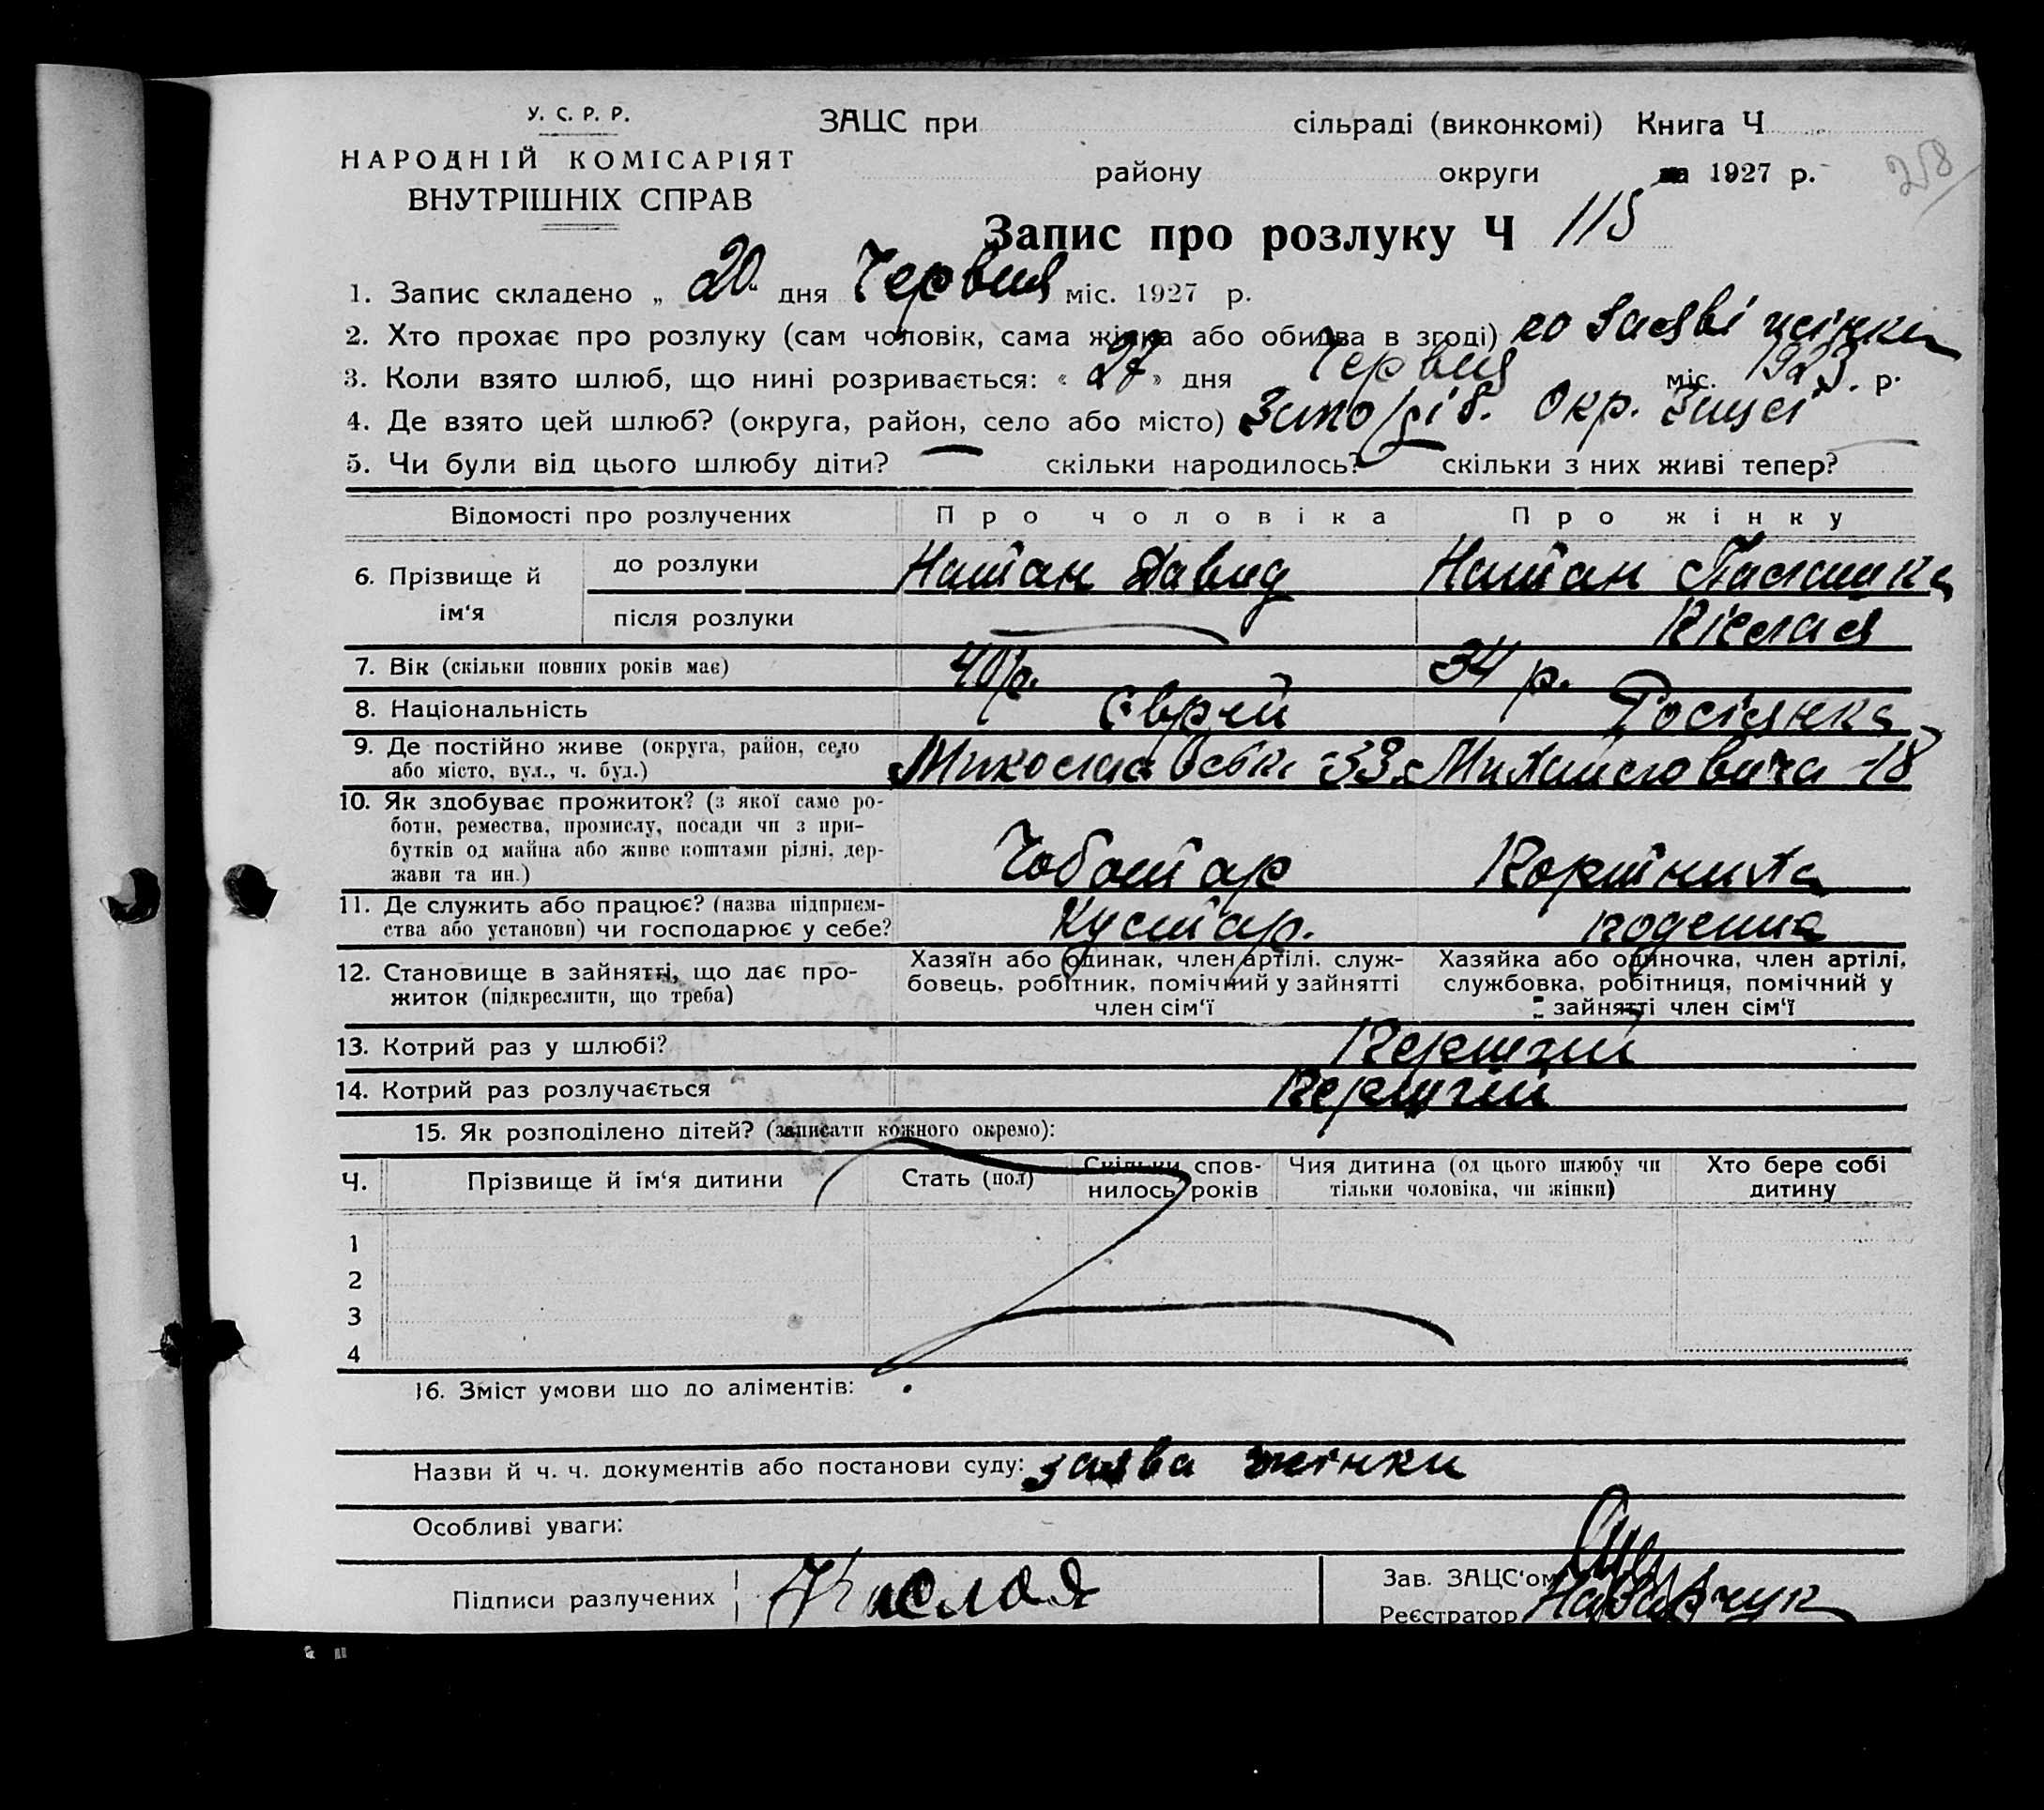 У. С. Р. Р.
НАРОДНІЙ КОМІСАРІЯТ
ВНУТРІШНІХ СПРАВ
ЗАЦС при сільраді (виконкомі) Книга Ч
району округи на 1927 р.
258
Запис про розлуку Ч 115
1. Запис складено „ 20 “ дня Червня міс. 1927 р.
2. Хто прохає про розлуку (сам чоловік, сама жінка або обидва в згоді) по заяві жінки
3. Коли взято шлюб, що нині розривається: « 27 » дня Червня міс. 1923. р.
4. Де взято цей шлюб? (округа, район, село або місто) Окр. Зацсі
5. Чи були від цього шлюбу діти? — скільки народилось? — скільки з них живі тепер? —
Відомості про розлучених Про чоловіка Про жінку
6. Прізвище й ім‘я
до розлуки Натан Давид Натан Палашка
після розлуки — Кісла я
7. Вік (скільки повних років має) 40 р. 34 р.
8. Національність Єврей Росіянка
9. Де постійно живе (округа, район, село
або місто, вул., ч. буд.) 33 Михайловича -18
10. Як здобуває прожиток? (з якої саме ро-
боти, ремества, промислу, посади чи з при-
бутків од майна або живе коштами рідні, дер-
жави та ин.) Чоботар Робітниця
11. Де служить або працює? (назва підприєм-
ства або установи) чи господарює у себе? Кустар. поденна
12. Становище в зайнятті, що дає про-
житок (підкреслити, що треба)
Хазяїн або одинак, член артілі, служ-
бовець, робітник, помічний у зайнятті
член сім‘ї
Хазяйка або одиночка, член артілі,
службовка, робітниця, помічний у
зайнятті член сім‘ї
13. Котрий раз у шлюбі? Перший
14. Котрий раз розлучається Перший
15. Як розподілено дітей? (записати кожного окремо):
Ч. Прізвище й ім‘я дитини Стать (пол) Скільки спов-
нилось років Чия дитина (од цього шлюбу чи
тільки чоловіка, чи жінки) Хто бере собі
дитину
1
2
3
4
16. Зміст умови що до аліментів:
Назви й ч. ч. документів або постанови суду: заява жінки
Особливі уваги:
Підписи разлучених Кислая
Зав. ЗАЦС‘ом
Реєстратор